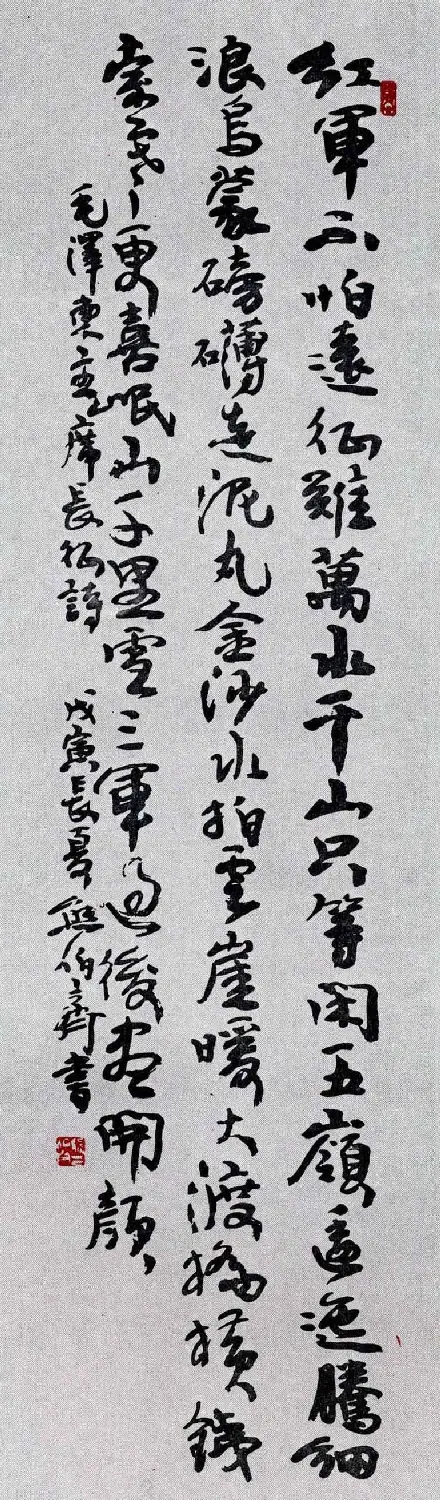 紅軍不怕遠征難萬水千山只等閑五嶺逶迤騰細
浪烏蒙磅礴走泥丸金沙水拍雲崖暖大渡橋横鐵
索寒更喜岷山千里雪三軍過後盡開顔
毛澤東主席長征詩 戊寅長夏熊伯齊書